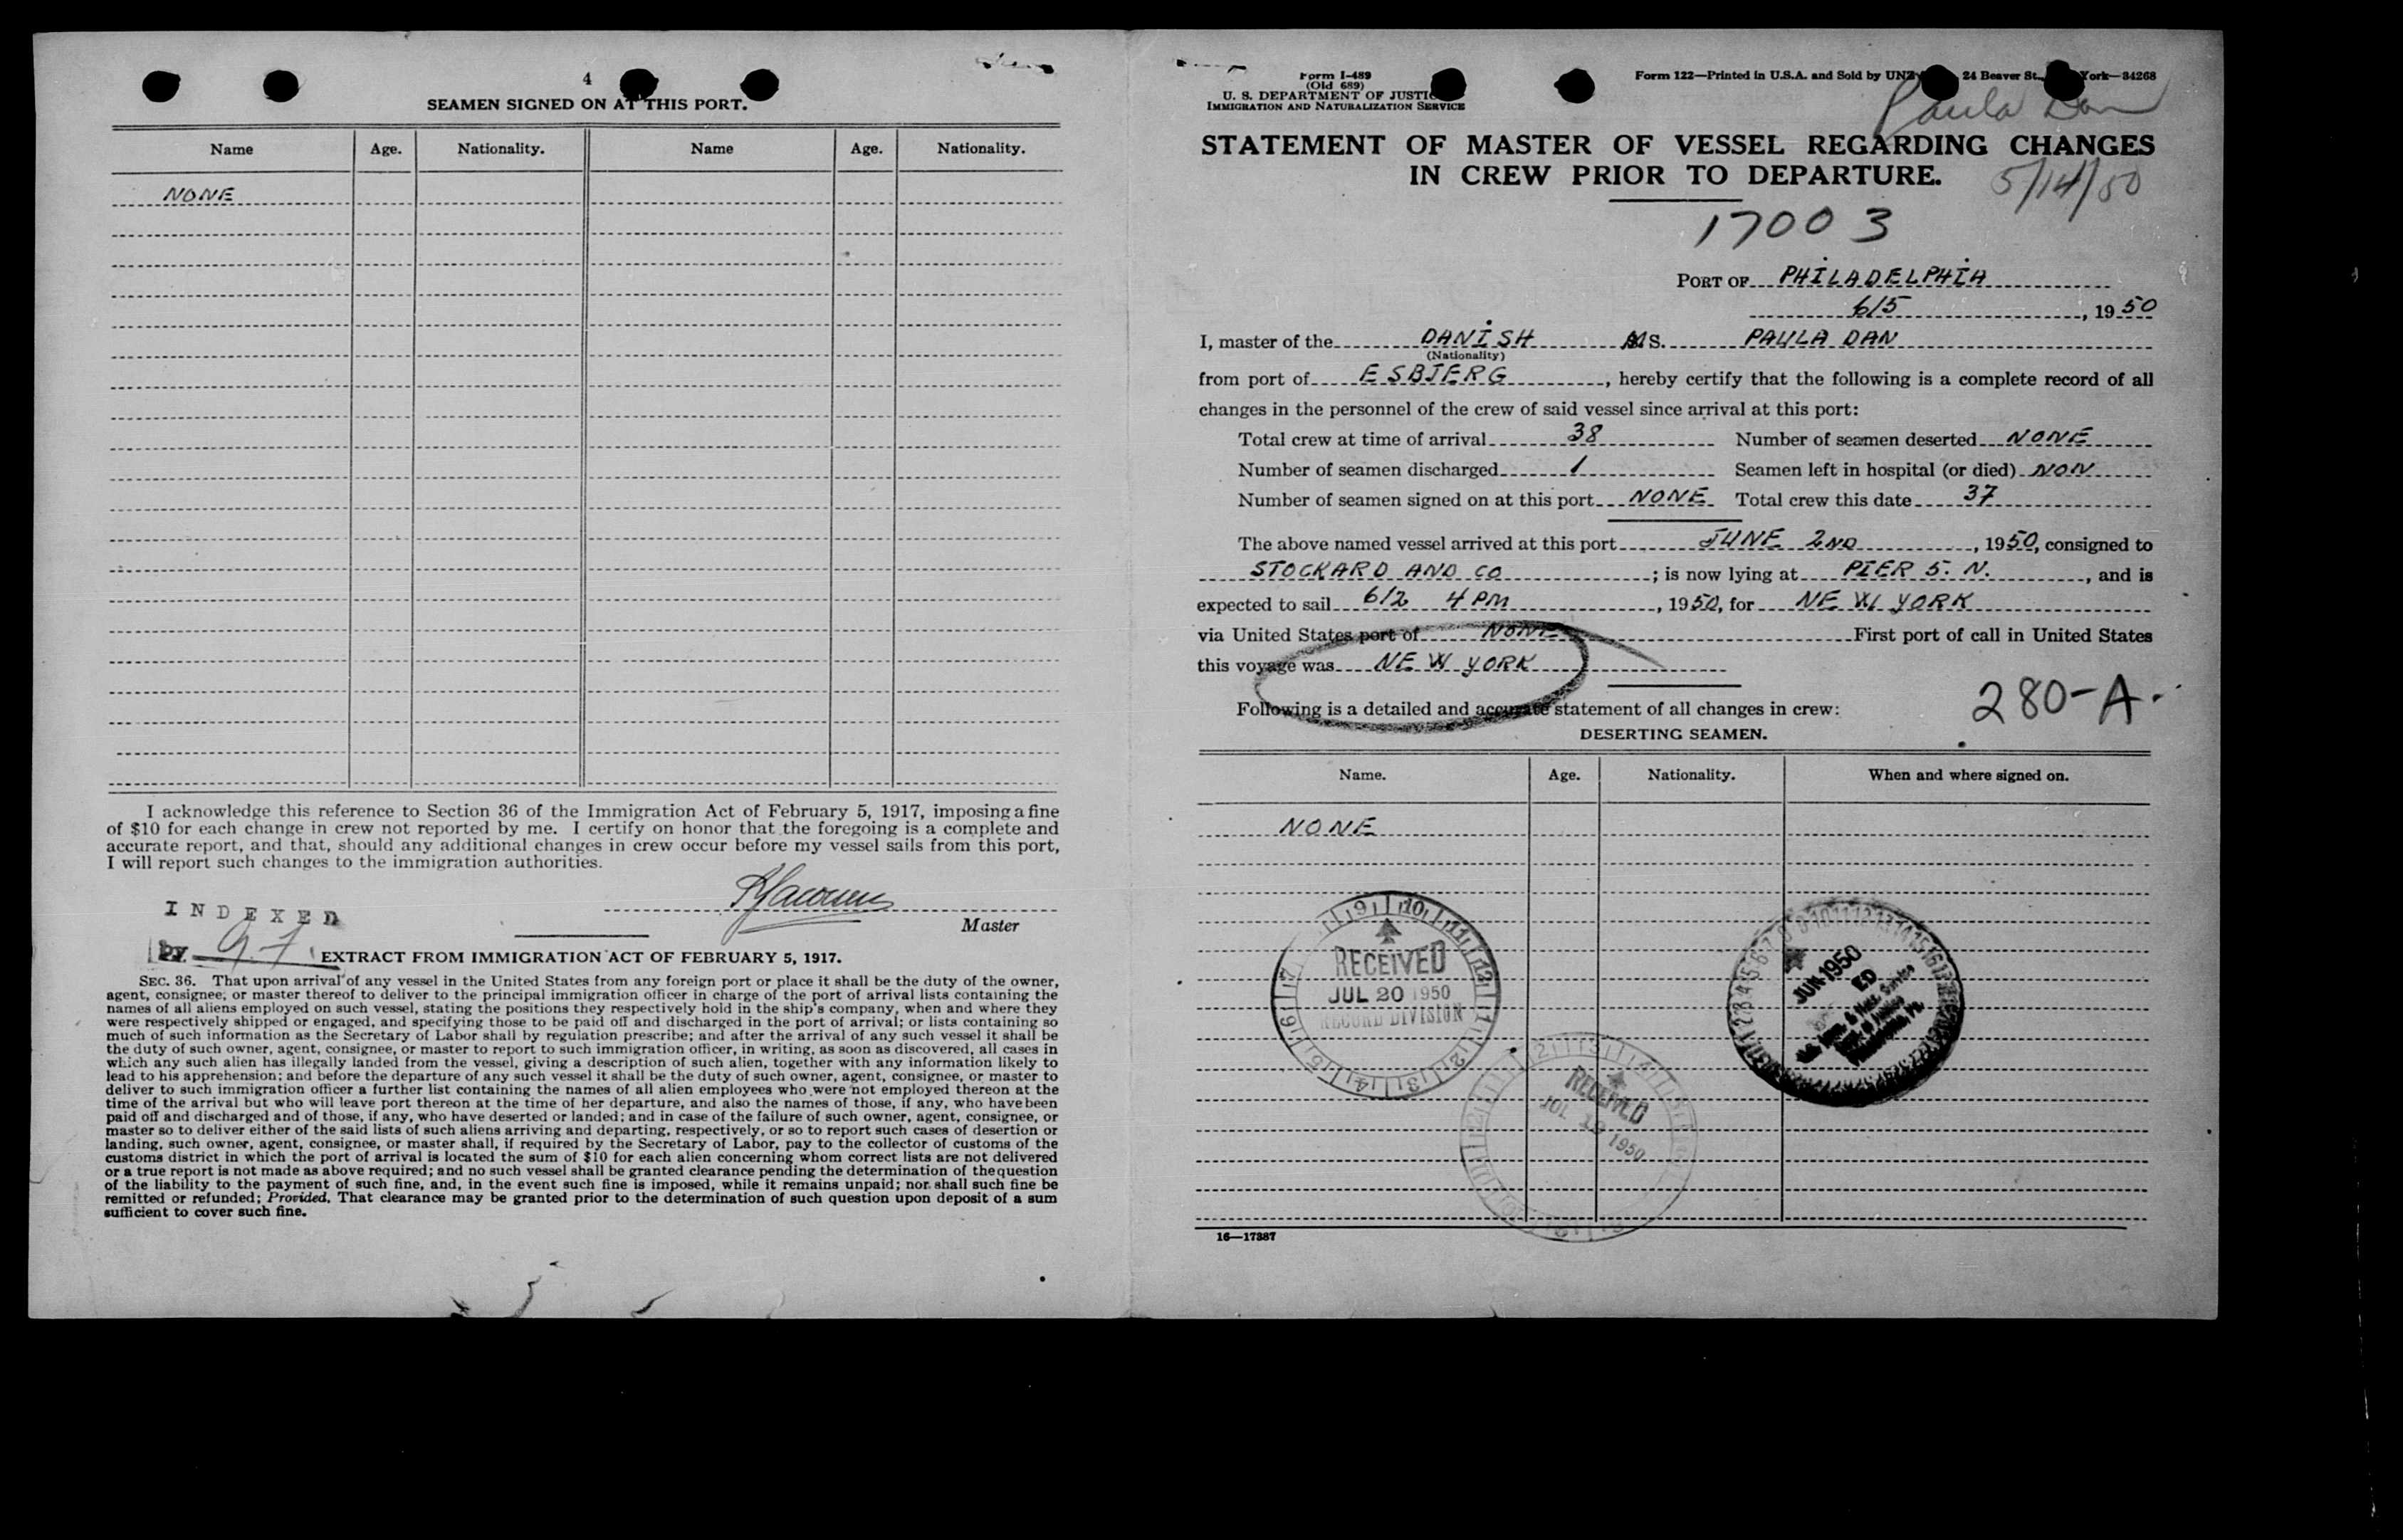 4
SEAMEN SIGNED ON AT THIS PORT.
Name Age. Nationality. Name Age. Nationality.
NONE
I acknowledge this reference to Section 36 of the Immigration Act of February 5, 1917, imposing a fine
of $10 for each change in crew not reported by me. I certify on honor that the foregoing is a complete and
accurate report, and that, should any additional changes in crew occur before my vessel sails from this port,
I will report such changes to the immigration authorities.
Master
INDEXED
by
EXTRACT FROM IMMIGRATION ACT OF FEBRUARY 5, 1917.
SEC. 36. That upon arrival of any vessel in the United States from any foreign port or place it shall be the duty of the owner,
agent, consignee, or master thereof to deliver to the principal immigration officer in charge of the port of arrival lists containing the
names of all aliens employed on such vessel, stating the positions they respectively hold in the ship's company, when and where they
were respectively shipped or engaged, and specifying those to be paid off and discharged in the port of arrival; or lists containing so
much of such information as the Secretary of Labor shall by regulation prescribe; and after the arrival of any such vessel it shall be
the duty of such owner, agent, consignee, or master to report to such immigration officer, in writing, as soon as discovered, all cases in
which any such alien has illegally landed from the vessel, giving a description of such alien, together with any information likely to
lead to his apprehension; and before the departure of any such vessel it shall be the duty of such owner, agent, consignee, or master to
deliver to such immigration officer a further list containing the names of all alien employees who were not employed thereon at the
time of the arrival but who will leave port thereon at the time of her departure, and also the names of those, if any, who have been
paid off and discharged and of those, if any, who have deserted or landed; and in case of the failure of such owner, agent, consignee, or
master so to deliver either of the said lists of such aliens arriving and departing, respectively, or so to report such cases of desertion or
landing, such owner, agent, consignee, or master shall, if required by the Secretary of Labor, pay to the collector of customs of the
customs district in which the port of arrival is located the sum of $10 for each alien concerning whom correct lists are not delivered
or a true report is not made as above required; and no such vessel shall be granted clearance pending the determination of the question
of the liability to the payment of such fine, and, in the event such fine is imposed, while it remains unpaid; nor shall such fine be
remitted or refunded; Provided, That clearance may be granted prior to the determination of such question upon deposit of a sum
sufficient to cover such fine.
Form I-489
(Old 689)
U. S. DEPARTMENT OF JUSTIC
IMMIGRATION AND NATURALIZATION SERVICE
Form 122—Printed in U.S.A. and Sold by UNZ 24 Beaver St., York—34268
Paula Dan
STATEMENT OF MASTER OF VESSEL REGARDING CHANGES
IN CREW PRIOR TO DEPARTURE.
5/14/50
17003
PORT OF PHILADELPHIA
6/5, 1950
I, master of the DANISH MS. PAULA DAN
(Nationality)
from port of ESBJERG, hereby certify that the following is a complete record of all
changes in the personnel of the crew of said vessel since arrival at this port:
Total crew at time of arrival 38 Number of seamen deserted NONE
Number of seamen discharged 1 Seamen left in hospital (or died) NON
Number of seamen signed on at this port NONE Total crew this date 37
The above named vessel arrived at this port JUNE 2ND, 1950, consigned to
STOCKARD AND CO; is now lying at PIER 5. N., and is
expected to sail 6/2 4 PM, 1950, for NEW YORK
via United States port of NONE First port of call in United States
this voyage was NEW YORK
280-A
Following is a detailed and accurate statement of all changes in crew:
DESERTING SEAMEN.
Name. Age. Nationality. When and where signed on.
NONE
RECEIVED
JUL 20 1950
RECORD DIVISION
JUN 1950
RECEIVED
JUL 1950
16—17387